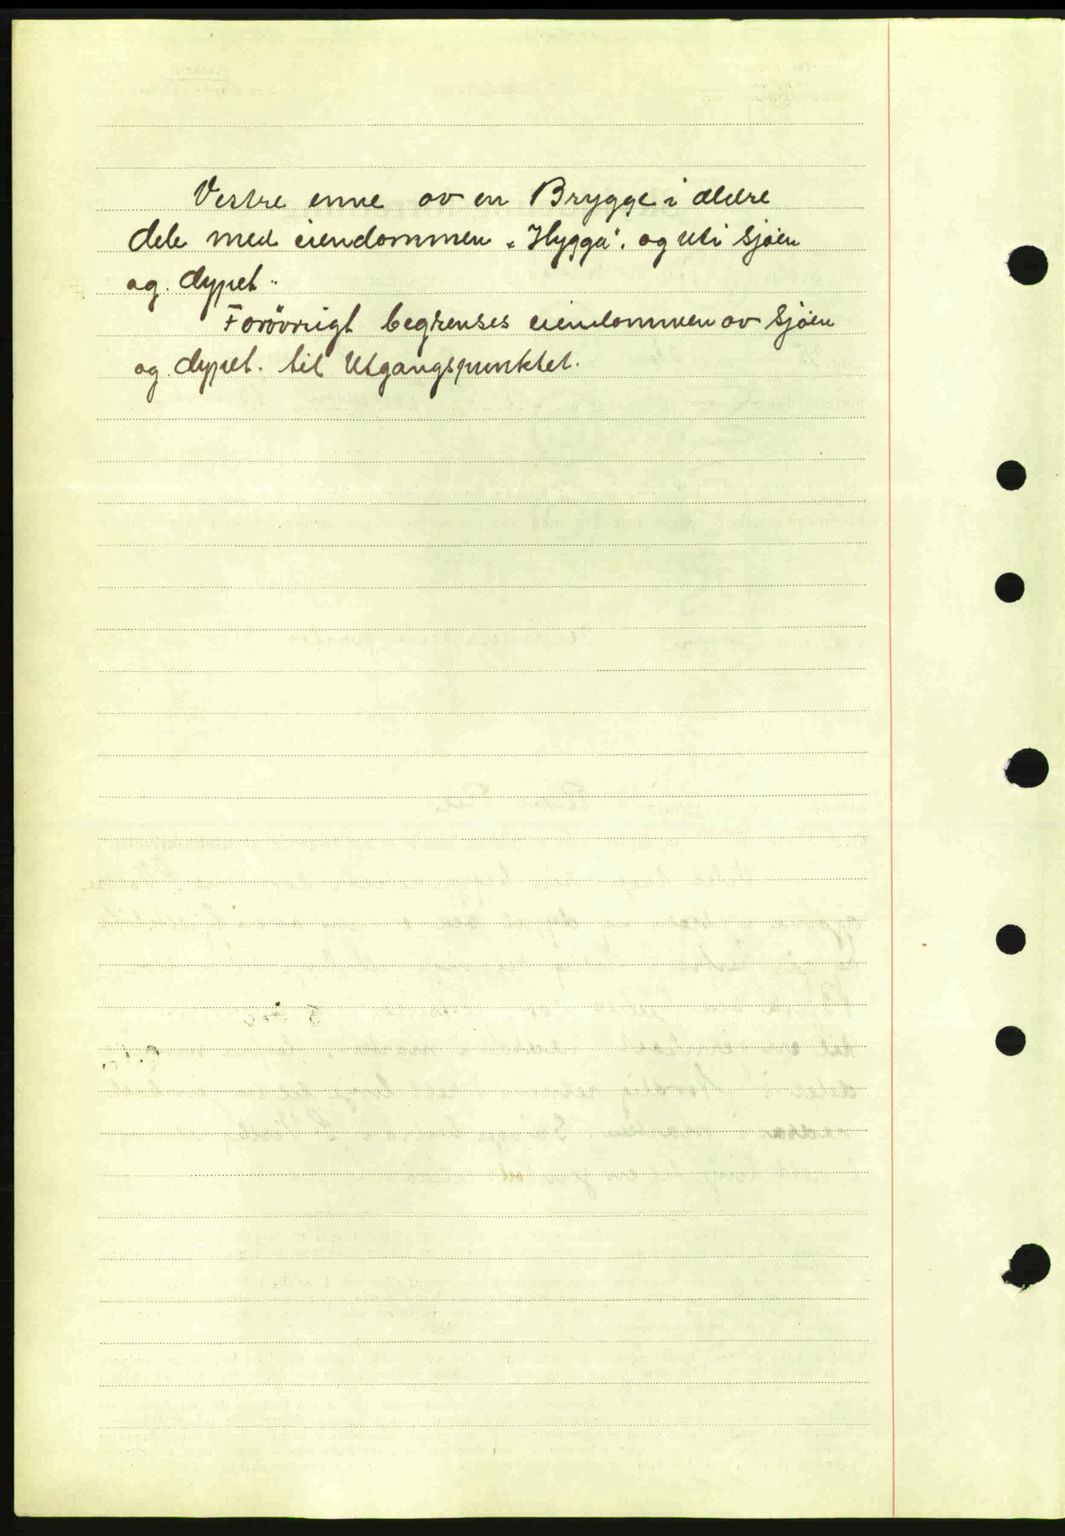 Vestre enne av en Brygge i ældre
dele med eiendommen „Hygga". og Uti Sjöen
og. dypet.
Forövrigt begrenses eiendommen av Sjöen
og. dypet. til Utgangspunktet.